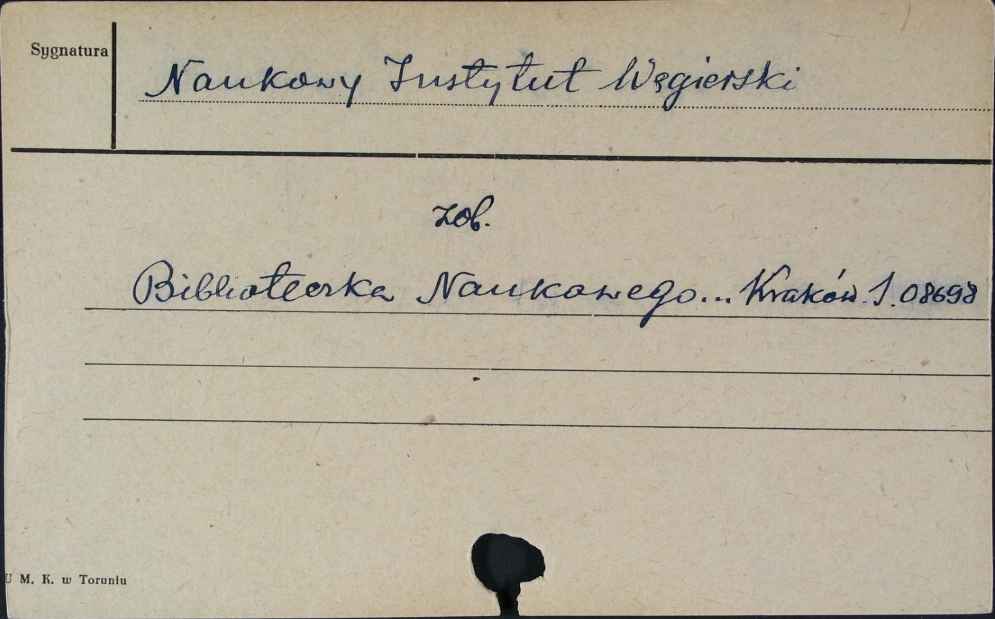 Sygnatura
Naukowy Instytut Węgierski
zob.
Biblioteczka Naukowego... Kraków. S. 08698
U M. K. w Toruniu